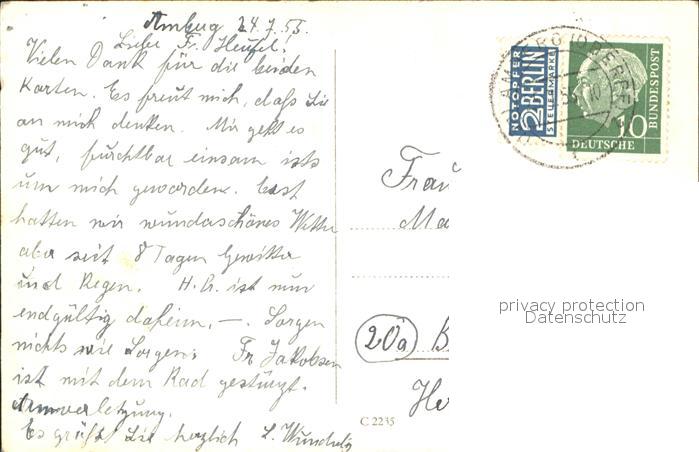 Amberg 24.7.55.
Liebe Fr. Heufel.
Vielen Dank für die beiden
Karten. Es freut mich, daß Sie
an mich denken. Mir geht es
gut, furchtbar einsam ists
um mich geworden. Erst
hatten wir wunderschönes Wetter
aber seit 8 Tagen Gewitter
und Regen. H. G. ist nun
endgültig daheim, —. Sorgen
nichts wie Sorgen. Fr. Jakobsen
ist mit dem Rad gestürzt.
Armverletzung.
Es grüßt Sie herzlich L.
NOTOPFER
2 BERLIN
STEUERMARKE
10
DEUTSCHE
BUNDESPOST
Frau
Ma
20a B
He
C 2235
privacy protection
Datenschutz